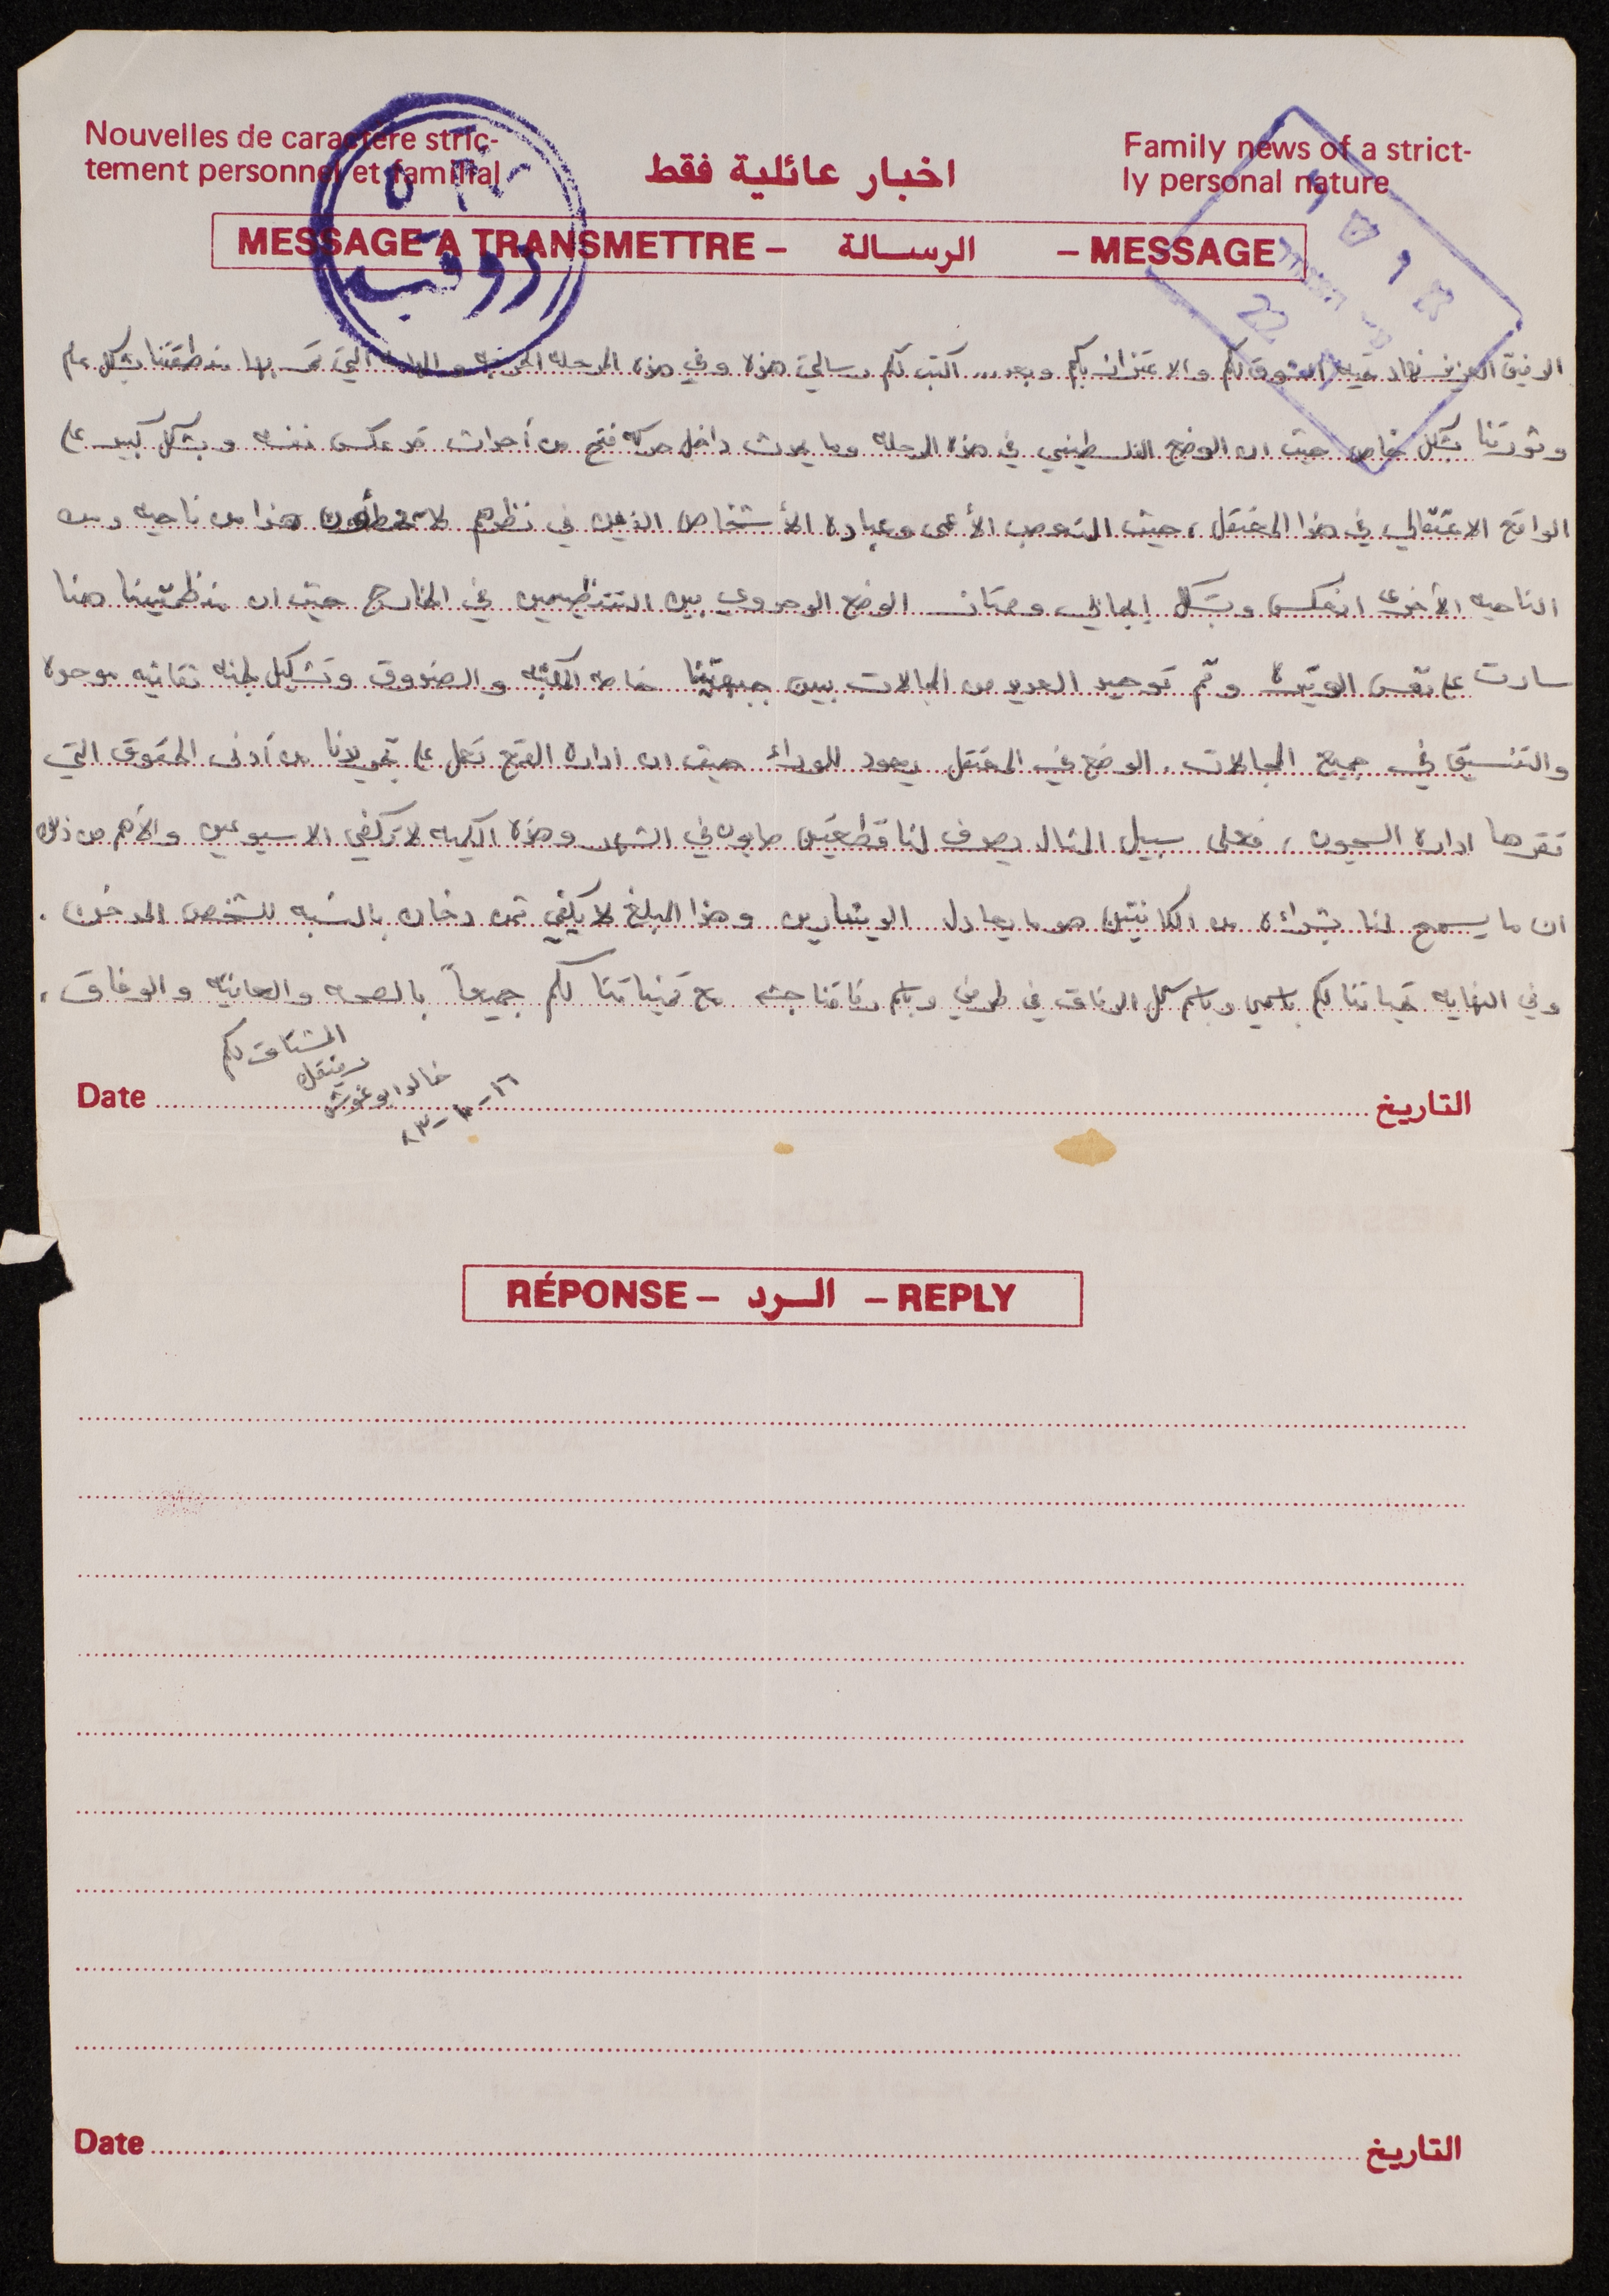 Nouvelles de caractère stric-
tement personnel et familial
اخبار عائلية فقط
Family news of a strict-
ly personal nature
MESSAGE A TRANSMETTRE – الرسالة – MESSAGE
الرفيق العزيز نهاد تحية الشوق لكم والاعتزاز بكم وبعد... اكتب لكم رسالتي هذه وفي هذه المرحله الحرجه و الهامه التي تمر بها منطقتنا بشكل عام
وثورتنا بشكل خاص حيث ان الوضع الفلسطيني في هذه المرحله وما يحدث داخل حركة فتح من أحداث قد عكس نفسه وبشكل كبير على
الواقع الاعتقالي في هذا المعتقل، حيث التعصب الأعمى وعبادة الأشخاص الذين في نظرهم لا يخطأون هذا من ناحيه ومن
الناحيه الأخرى انعكس وبشكل ايجابي وممتاز الوضع الوحدوي بين التنظيمين في الخارج حيث ان منظمتينا هنا
سارت على نفس الوتيرة وتم توحيد العديد من المجالات بين جبهتينا خاصه المكتبه والصندوق وتشكيل لجنه ثقافيه موحده
والتنسيق في جميع المجالات. الوضع في المعتقل يعود للوراء حيث ان اداره القمع تعمل على تجريدنا من أدنى الحقوق التي
تقرها اداره السجون، فعلى سبيل المثال يصرف لنا قطعتين صابون في الشهر وهذه الكميه لا تكفي الا سبوعين والأهم من ذلك
ان ما يسمح لنا بشرائه من الكانتين هو ما يعادل الدينارين وهذا المبلغ لا يكفي ثمن دخان بالنسبه للشخص المدخن.
وفي النهايه تحياتنا لكم باسمي وباسم كل الرفاق في طرفي وباسم رفاقنا جشه مع تمنياتنا لكم جميعاً بالصحه والعافيه والوفاق.
المشتاق لكم
رفيقك
خالد ابو غوش
١٦-١٠-٨٣
Date التاريخ
RÉPONSE – الرد – REPLY
Date التاريخ